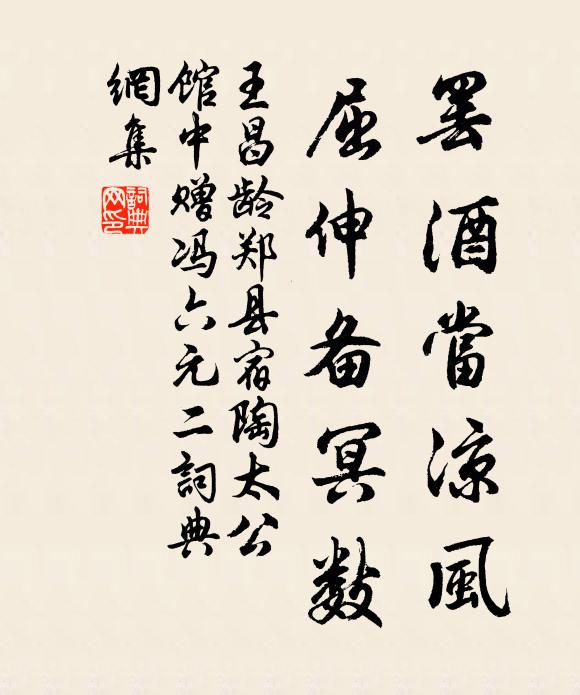 罢酒當凉風
屈伸备冥数
王昌龄郑县宿陶太公
馆中赠冯六元二詞典
網集
詞典网印